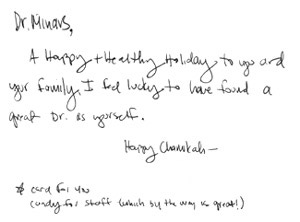 Dr. Minars,
A Happy + Healthy Holiday to you and
your family. I feel lucky to have found a
great Dr. as yourself.
Happy Chanukah –
* card for you
candy for staff (which by the way is great!)